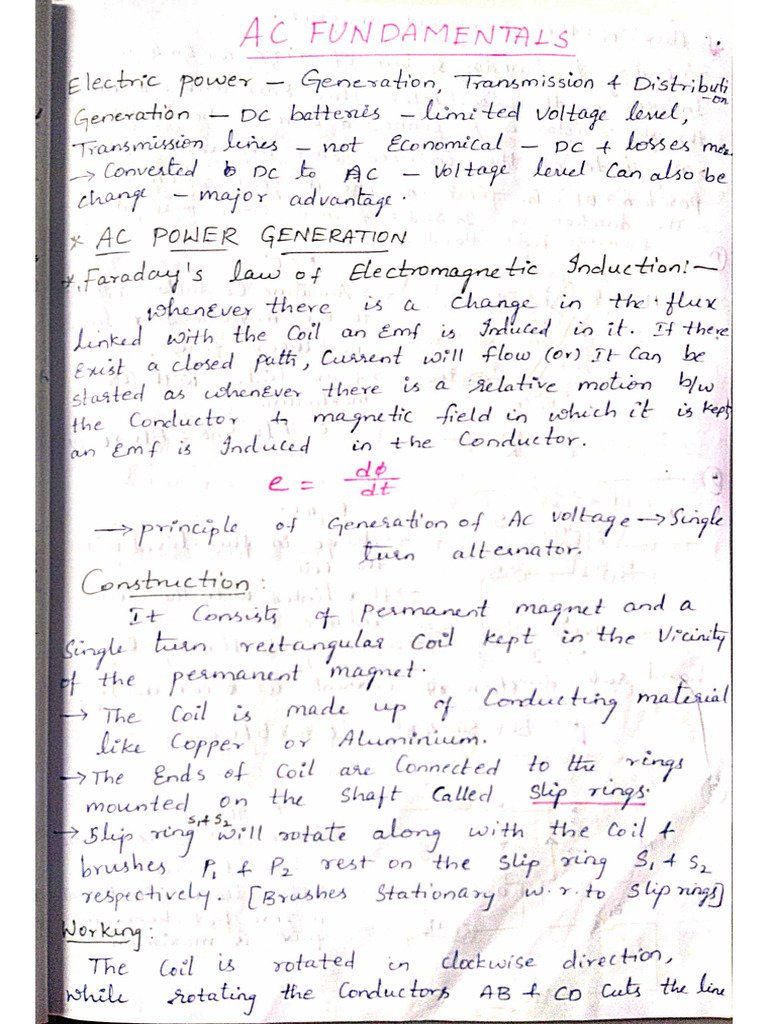 AC FUNDAMENTALS
Electric power – Generation, Transmission & Distributi
-on
Generation – DC batteries – limited Voltage level,
Transmission lines – not Economical – DC & losses more
→ Converted DC to AC – Voltage level Can also be
change – major advantage.
* AC POWER GENERATION
*. Faraday's law of Electromagnetic Induction:–
Whenever there is a change in the flux
linked with the Coil an Emf is Induced in it. If there
Exist a closed path, Current will flow (or) It Can be
started as whenever there is a relative motion b/w
the Conductor & magnetic field in which it is kept
an Emf is Induced in the Conductor.
e = dϕ/dt
→ principle of Generation of AC voltage → Single
turn alternator.
Construction:
It Consists of permanent magnet and a
Single turn rectangular Coil kept in the Vicinity
of the permanent magnet.
→ The Coil is made up of Conducting material
like Copper or Aluminium.
→ The Ends of Coil are Connected to the rings
mounted on the Shaft Called Slip rings.
→ Slip ring S1 & S2 will rotate along with the Coil &
brushes P1 & P2 rest on the Slip ring S1 & S2
respectively. [Brushes Stationary w.r.to Slip rings]
Working:
The Coil is rotated in clockwise direction,
while rotating the Conductors AB & CD Cuts the line